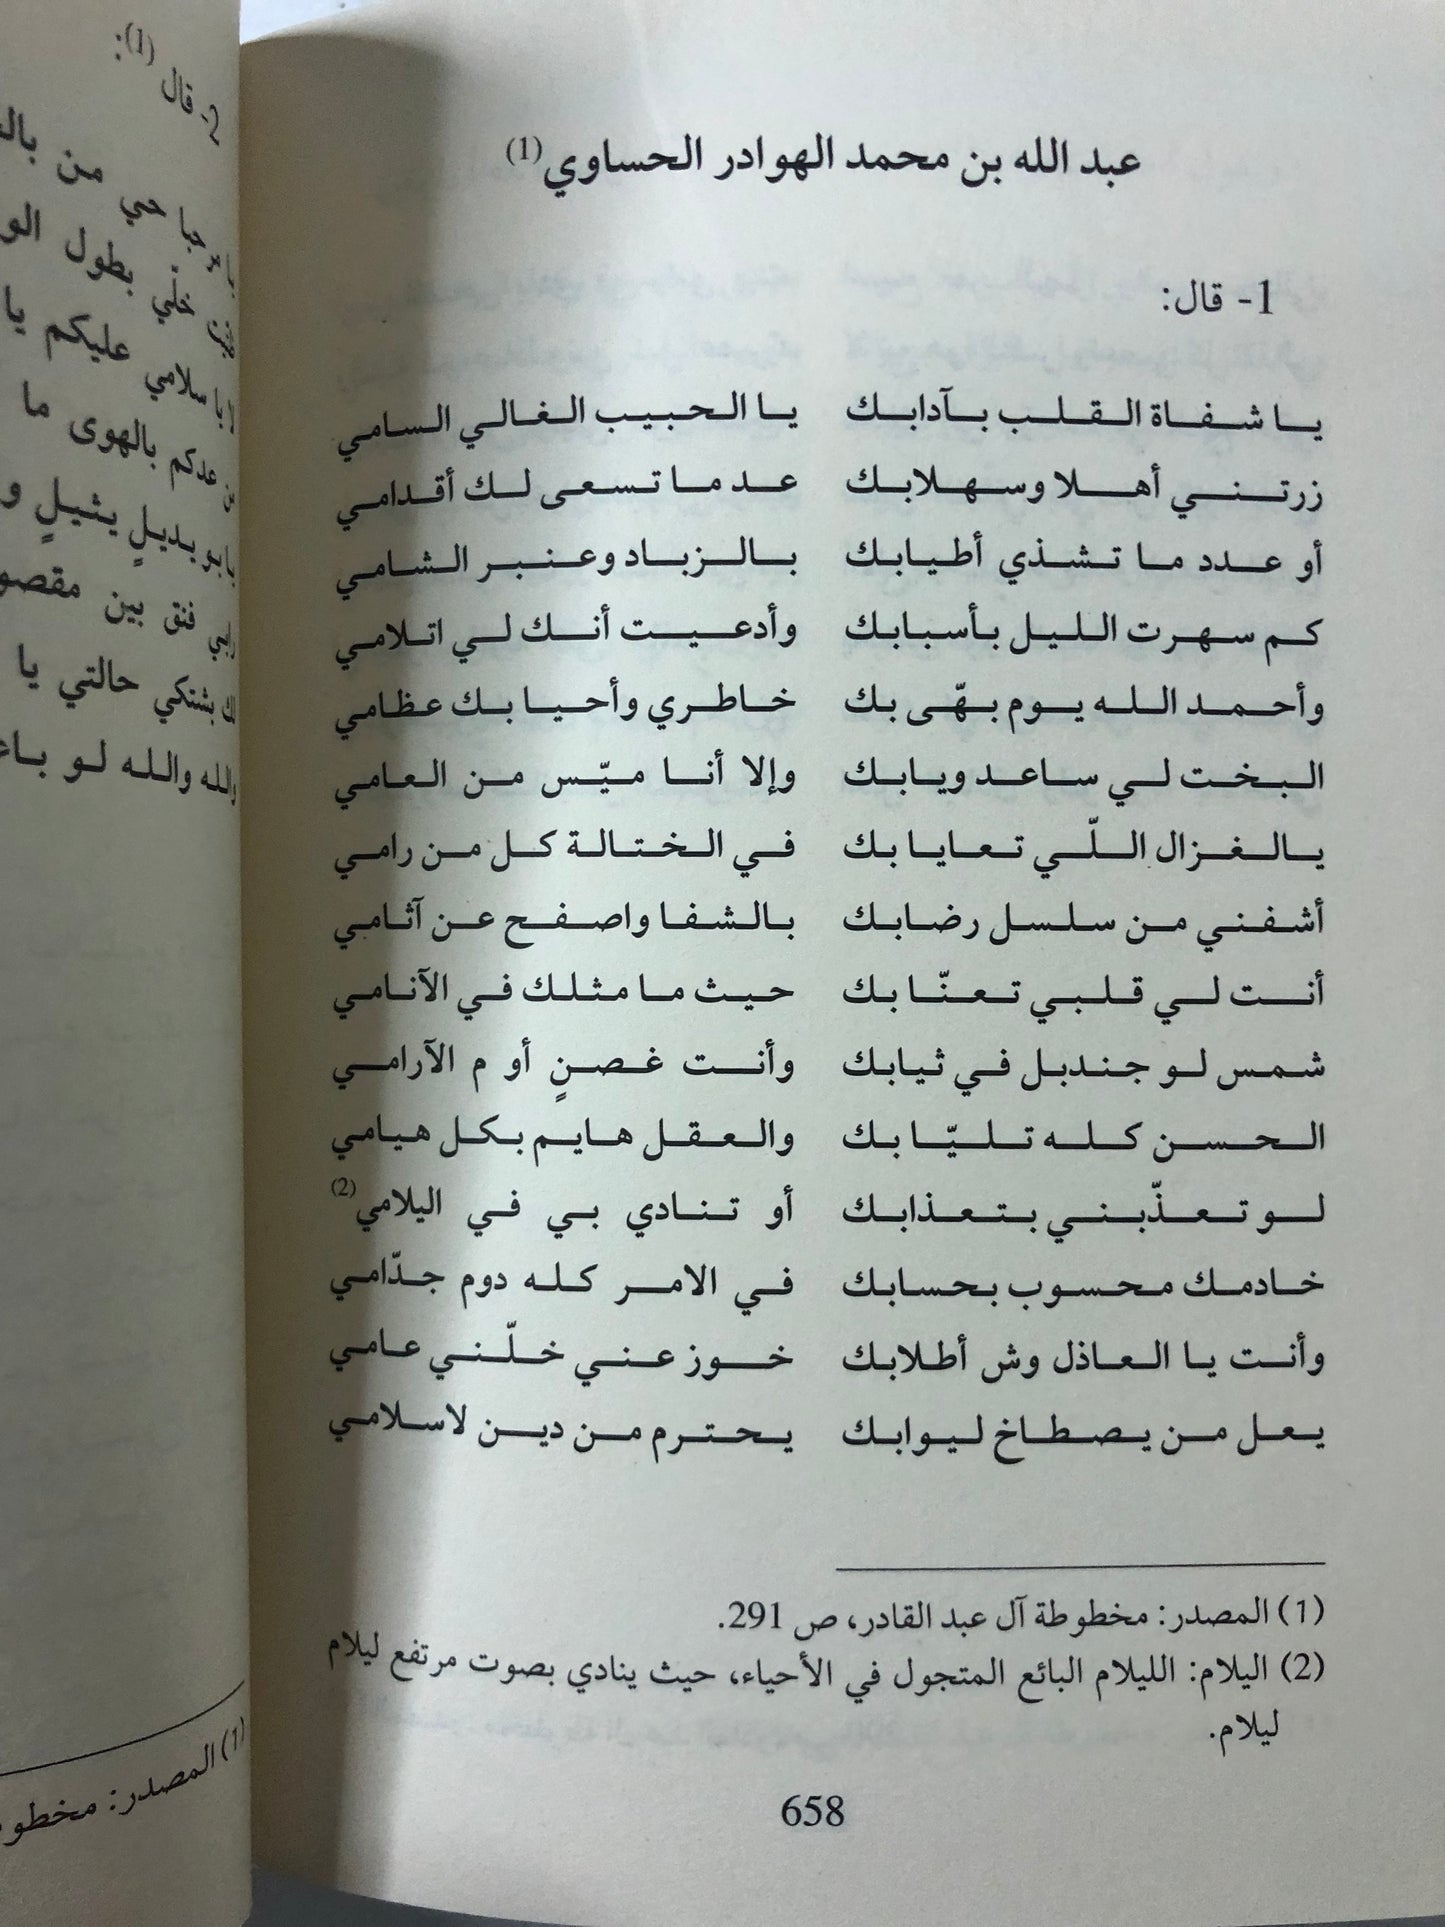 عبد الله بن محمد الهوادر الحساوي(1)
1- قال:
يا شفاة القلب بآدابك يا الحبيب الغالي السامي
زرتني أهلا وسهلابك عد ما تسعى لك أقدامي
أو عدد ما تشذي أطيابك بالزباد وعنبر الشامي
كم سهرت الليل بأسبابك وأدعيت أنك لي اتلامي
وأحمد الله يوم بهّى بك خاطري وأحيا بك عظامي
البخت لي ساعد ويابك وإلا أنا ميّس من العامي
يالغزال اللّي تعايا بك في الختالة كل من رامي
أشفني من سلسل رضابك بالشفا واصفح عن آثامي
أنت لي قلبي تعنّا بك حيث ما مثلك في الآنامي
شمس لو جندبل في ثيابك وأنت غصنٍ أو م الآرامي
الحسن كله تليّا بك والعقل هايم بكل هيامي
لو تعذّبني بتعذابك أو تنادي بي في اليلامي(2)
خادمك محسوب بحسابك في الامر كله دوم جدّامي
وأنت يا العاذل وش أطلابك خوز عني خلّني عامي
يعل من يصطاخ ليوابك يحترم من دين لاسلامي
(1) المصدر: مخطوطة آل عبد القادر، ص 291.
(2) اليلام: الليلام البائع المتجول في الأحياء، حيث ينادي بصوت مرتفع ليلام
ليلام.
658
2- قال (1):
حي من
خلّي بطول
سلامي عليكم يا
عدكم بالهوى ما
بديلٍ يثيلٍ
فنق بين
بشتكي حالتي يا
والله والله لو
(1) المصدر: